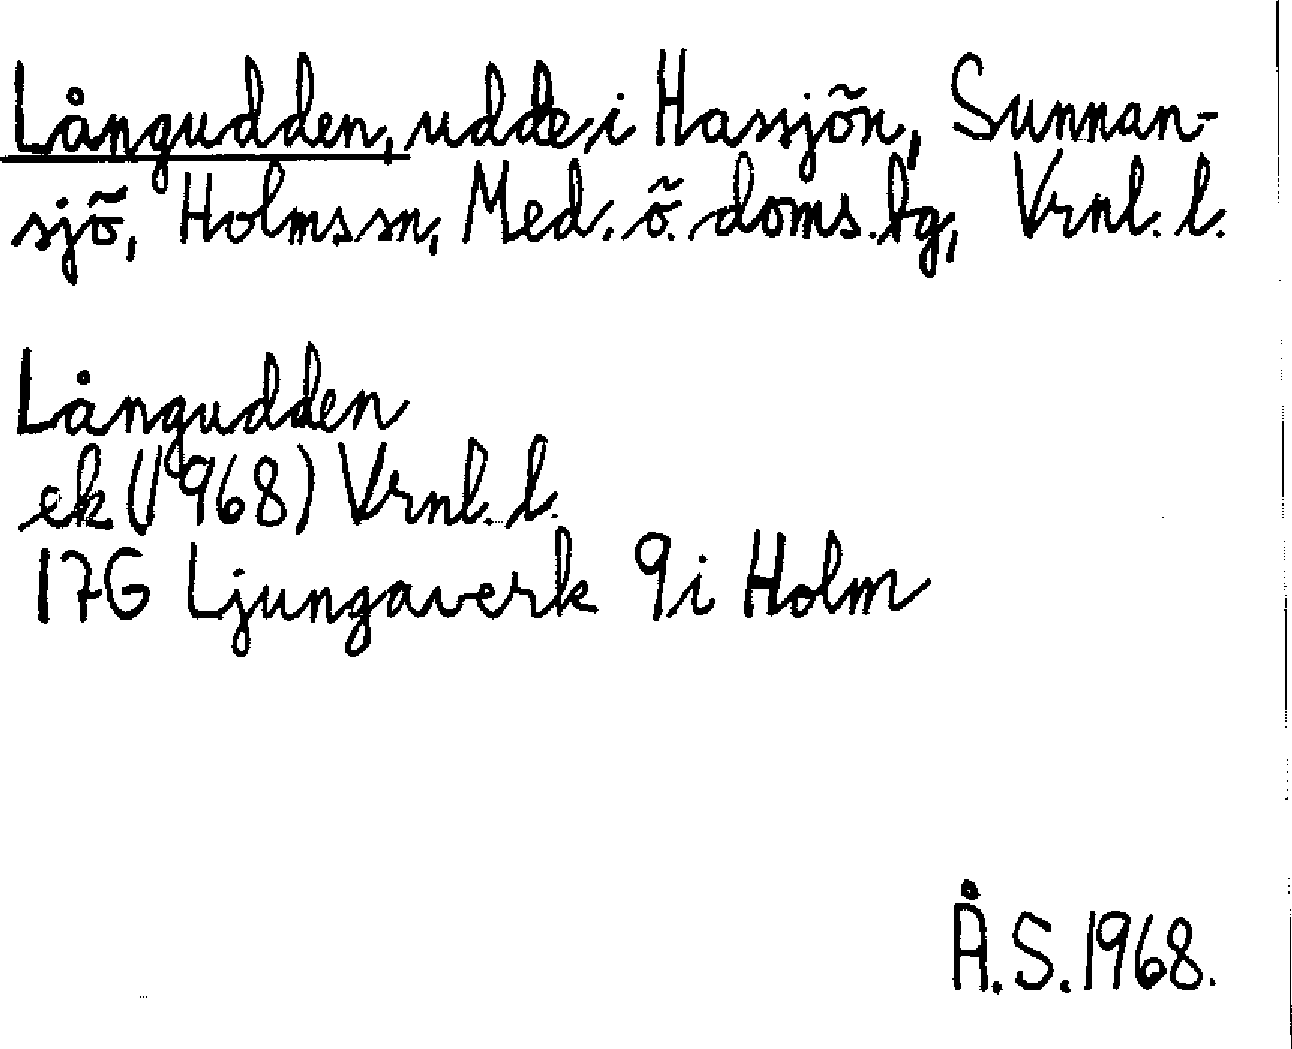 Långudden, udde i Hassjön, Sunnan-
sjö, Holms sn, Med. ö. doms.lg, Vrnl. l.
Långudden
ek (1968) Vrnl. l.
17G Ljungaverk 9i Holm
Å.S. 1968.